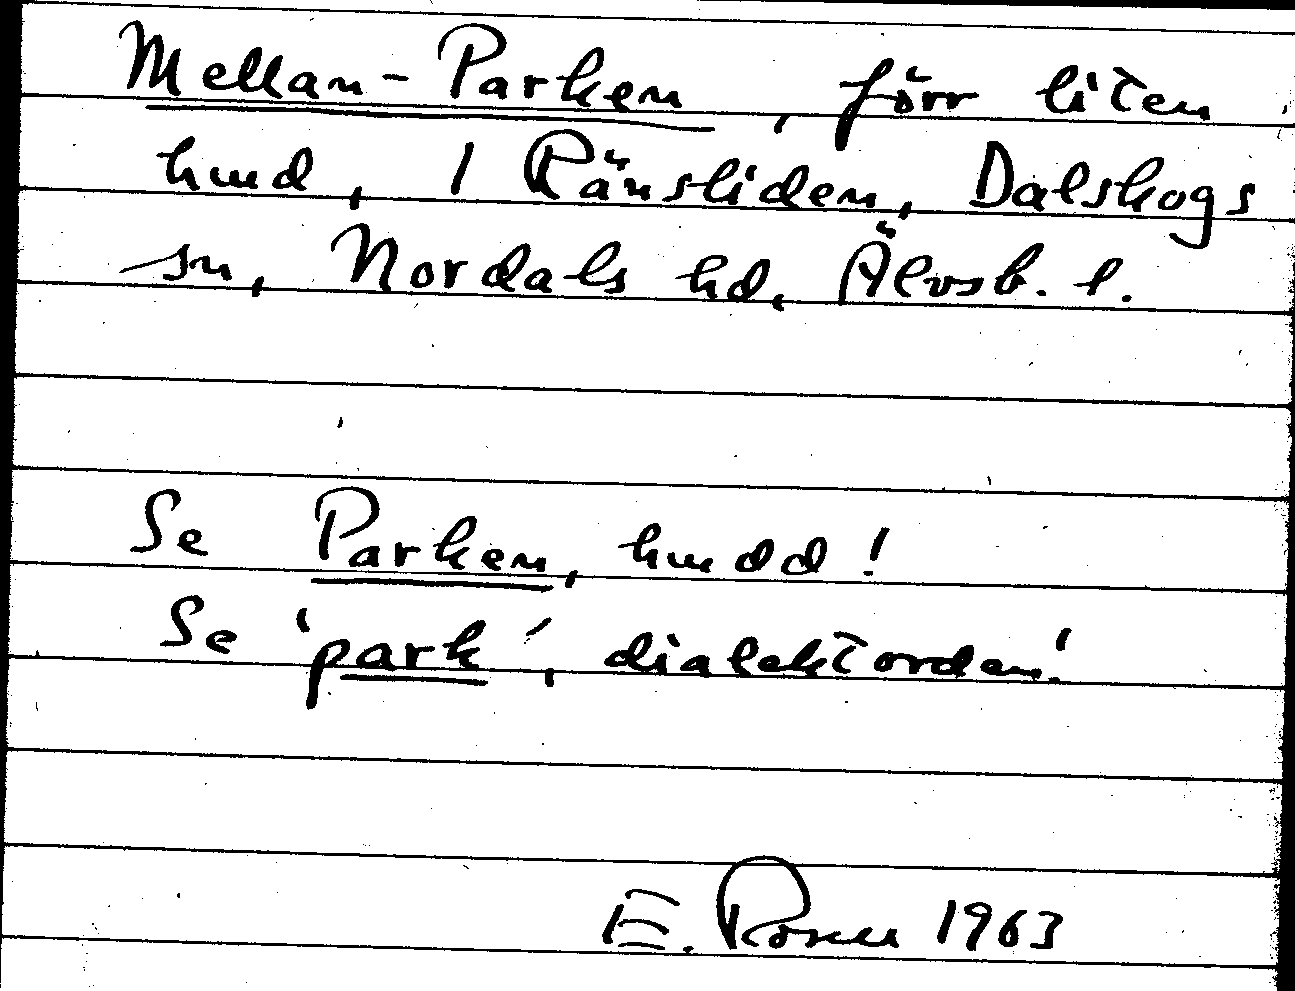 Mellan-Parken, förr liten
lund, 1 Ränsliden, Dalskogs
sn, Nordals hd, Älvsb. l.
Se Parken, lund d!
Se 'park', dialektorden!
E. Rosell 1963